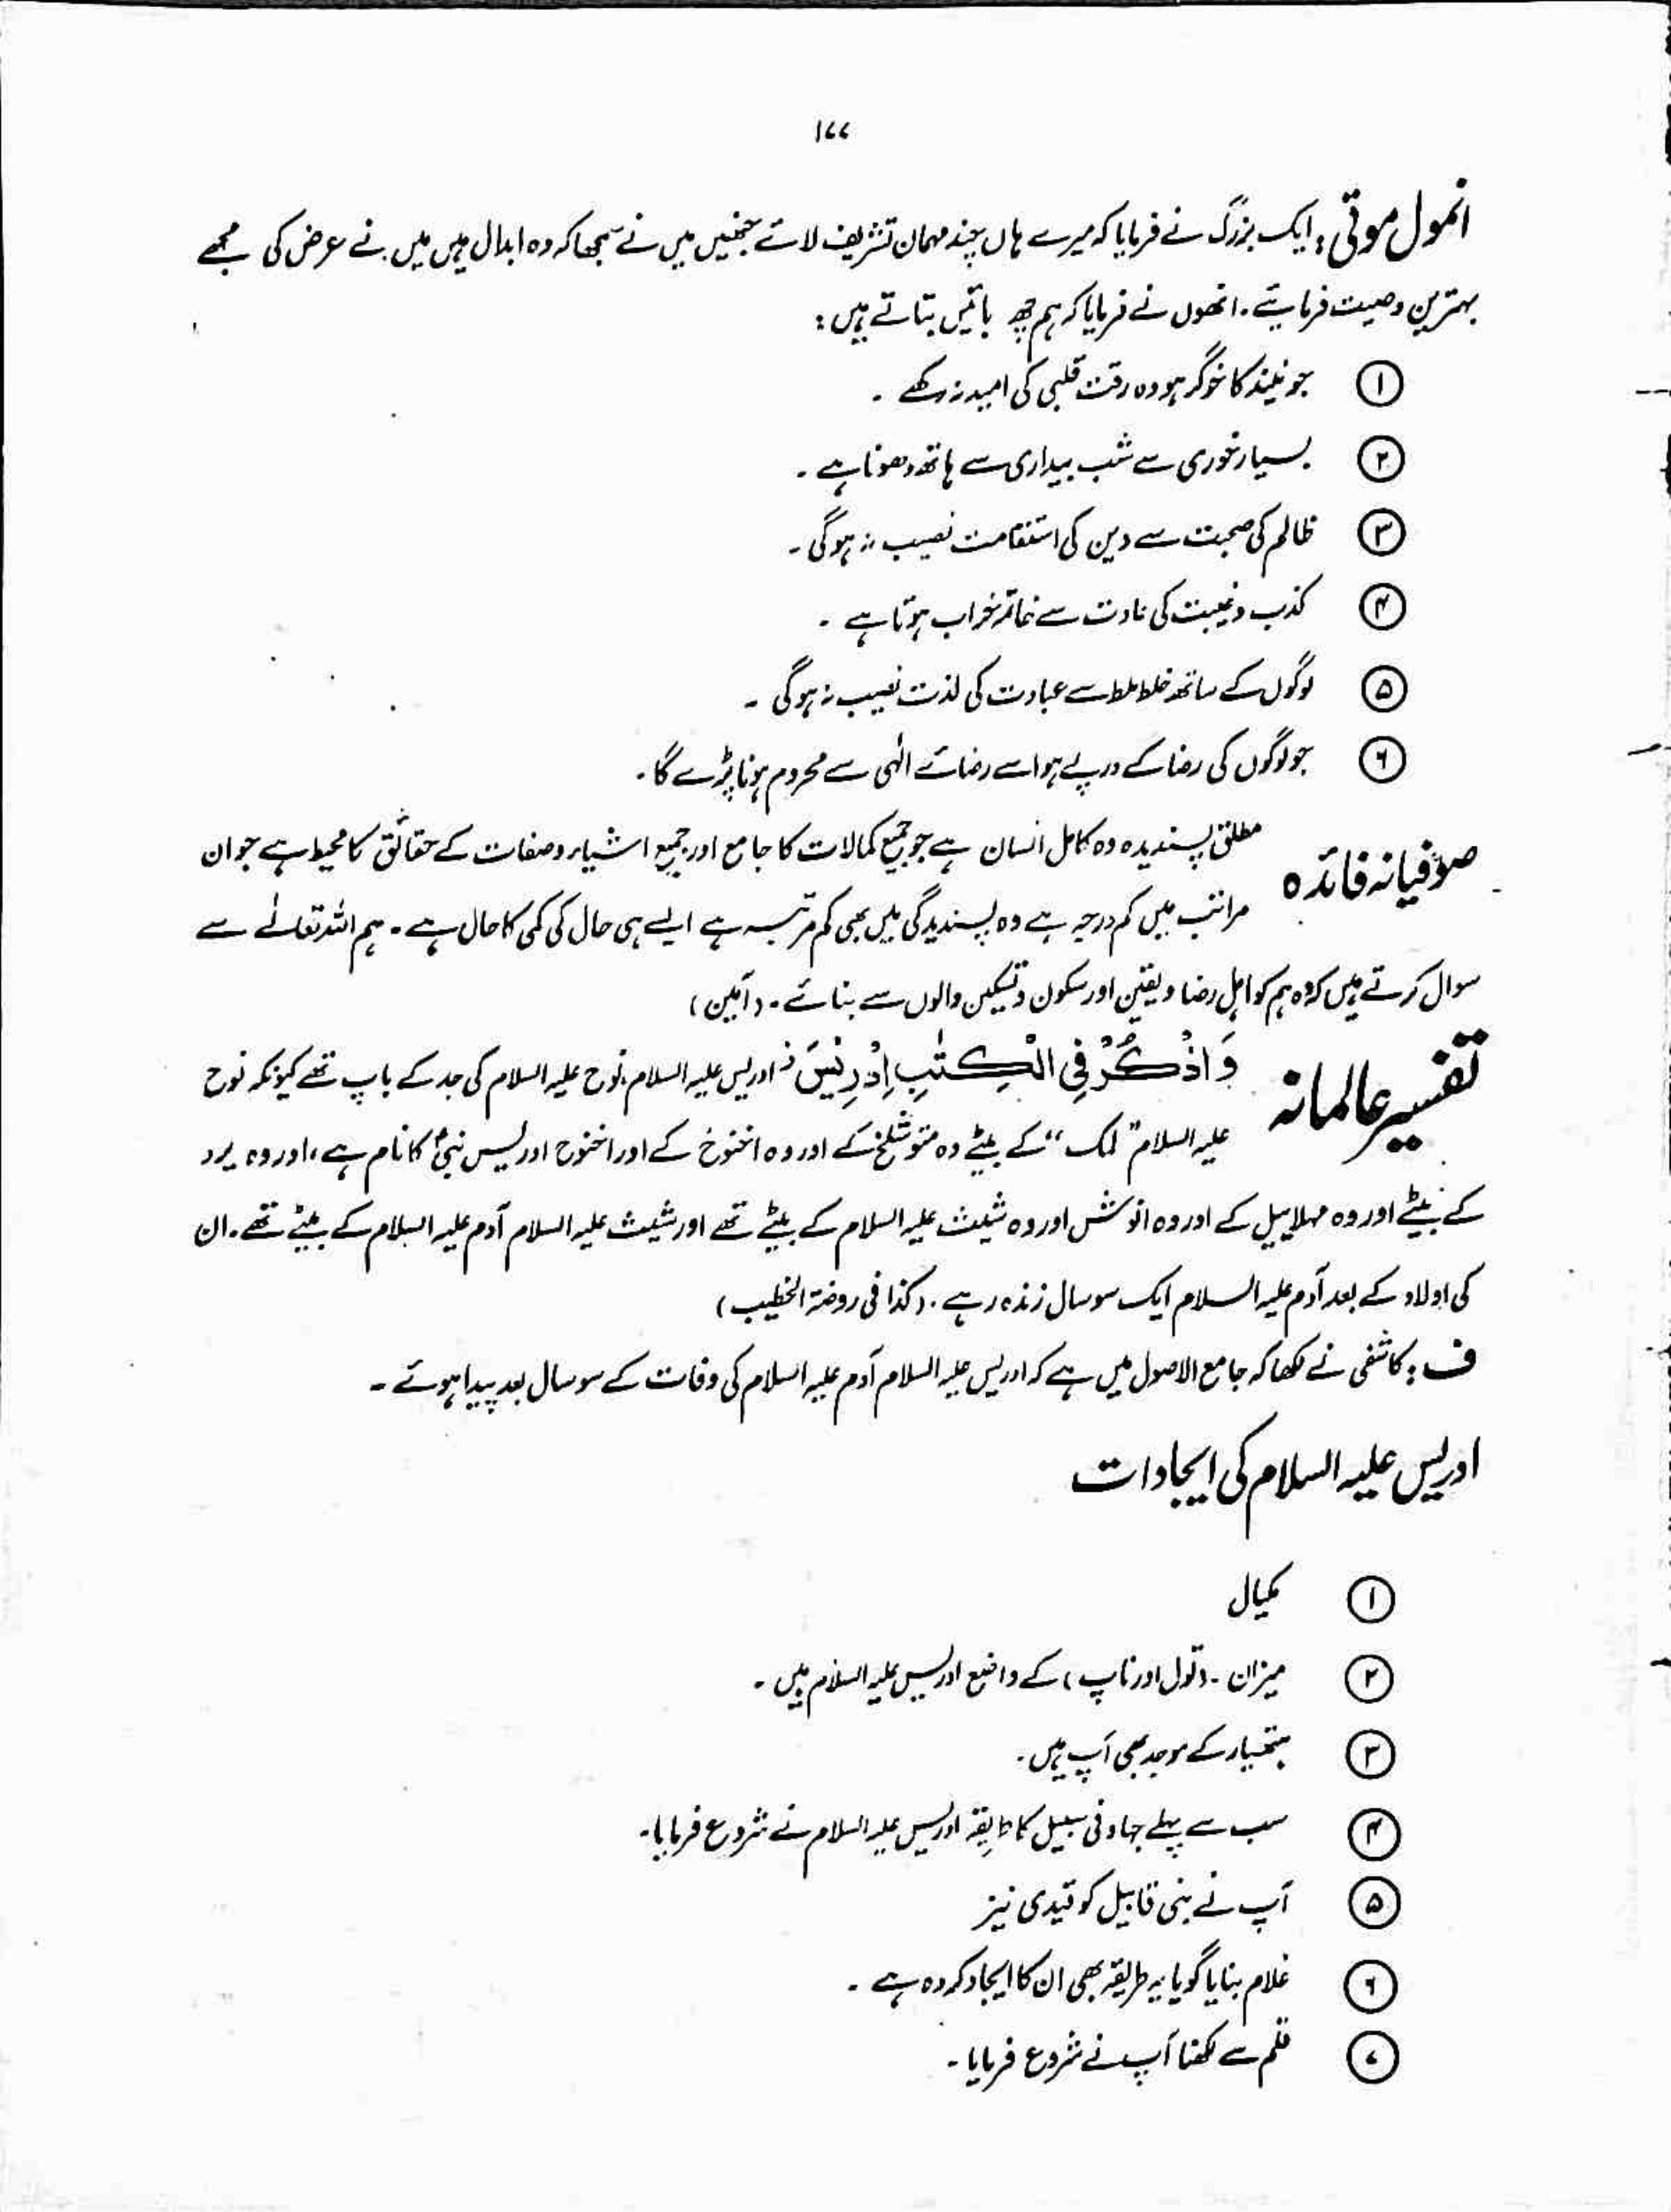 ۱۷۷
انمول موتی : ایک بزرگ نے فرمایا کہ میرے ہاں چند مہمان تشریف لائے جنھیں میں نے سمجھا کہ وہ ابدال ہیں میں نے عرض کی مجھے
بہترین وصیت فرمایئے۔ انھوں نے فرمایا کہ ہم چھ باتیں بتاتے ہیں :
① جو نیند کا خوگر ہو وہ رقت قلبی کی امید نہ رکھے ۔
② بسیار خوری سے شب بیداری سے ہاتھ دھونا ہے ۔
③ ظالم کی صحبت سے دین کی استقامت نصیب نہ ہو گی ۔
④ کذب و غیبت کی عادت سے خاتمہ خراب ہوتا ہے ۔
⑤ لوگوں کے ساتھ خلط ملط سے عبادت کی لذت نصیب نہ ہو گی ۔
⑥ جو لوگوں کی رضا کے درپے ہو اسے رضائے الٰہی سے محروم ہونا پڑے گا ۔
صوفیانہ فائدہ مطلق پسندیدہ وہ کامل انسان ہے جو جمیع کمالات کا جامع اور جمیع اشیاء و صفات کے حقائق کا محیط ہے جو ان
مراتب میں کم درجہ ہے وہ پسندیدگی میں بھی کم مرتبہ ہے ایسے ہی حال کی کمی کا حال ہے ۔ ہم اللہ تعالےٰ سے
سوال کرتے ہیں کہ وہ ہم کو اہلِ رضا و یقین اور سکون و تسکین والوں سے بنائے ۔ (آمین)
تفسیر عالمانہ وَاذْكُرْ فِی الْكِتٰبِ اِدْرِیْسَ ز ادریس علیہ السلام نوح علیہ السلام کی جد کے باپ تھے کیونکہ نوح
علیہ السلام "لمک" کے بیٹے وہ متوشلخ کے اور وہ اخنوخ کے اور اخنوح ادریس نبیؑ کا نام ہے، اور وہ یرد
کے بیٹے اور وہ مہلاییل کے اور وہ انوشش اور وہ شیث علیہ السلام کے بیٹے تھے اور شیث علیہ السلام آدم علیہ السلام کے بیٹے تھے۔ ان
کی اولاد کے بعد آدم علیہ السلام ایک سو سال زندہ رہے ۔ (کذا فی روضۃ الخطیب)
ف : کاشفی نے لکھا کہ جامع الاصول میں ہے کہ ادریس علیہ السلام آدم علیہ السلام کی وفات کے سو سال بعد پیدا ہوئے ۔
ادریس علیہ السلام کی ایجادات
① کمیال
② میزان ۔ (تول اور ناپ) کے واضع ادریس علیہ السلام ہیں ۔
③ ہتھیار کے موجد بھی آپ ہیں ۔
④ سب سے پہلے جہاد فی سبیل کا طریقہ ادریس علیہ السلام نے شروع فرمایا۔
⑤ آپ نے بنی قابیل کو قیدی نیز
⑥ غلام بنایا گویا یہ طریقہ بھی ان کا ایجاد کردہ ہے ۔
⑦ قلم سے لکھنا آپ نے شروع فرمایا ۔